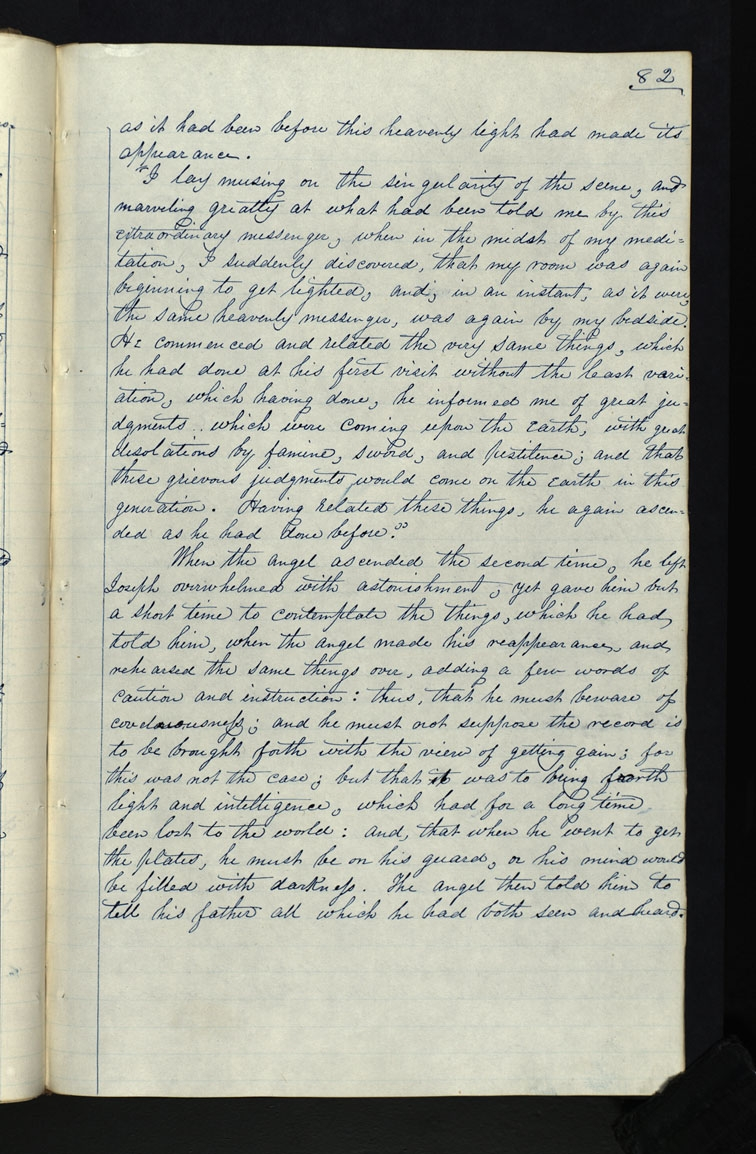 82
as it had been before this heavenly light had made its
appearance.
"I lay musing on the singularity of the scene, and
marveling greatly at what had been told me by this
extraordinary messenger, when in the midst of my medi=
tation, I suddenly discovered, that my room was again
beginning to get lighted, and, in an instant, as it were,
the same heavenly messenger, was again by my bedside.
He commenced and related the very same things, which
he had done at his first visit without the least vari-
ation, which having done, he informed me of great ju-
dgments.. which were coming upon the Earth, with great
desolations by famine, sword, and pestilence; and that
these grievous judgments would come on the Earth in this
generation. Having related these things, he again ascen-
ded as he had done before."
When the angel ascended the second time, he left
Joseph overwhelmed with astonishment, yet gave him but
a short time to contemplate the things, which he had,
told him, when the angel made his reappearance, and
rehearsed the same things over, adding a few words of
caution and instruction: thus, that he must beware of
coveteousness; and he must not suppose the record is
to be brought forth with the view of getting gain; for
this was not the case; but that it was to bring foorth
light and intelligence, which had for a long time
been lost to the world: and, that when he went to get
the plates, he must be on his guard, or his mind would
be filled with darkness. The angel then told him to
tell his father all which he had both seen and heard.